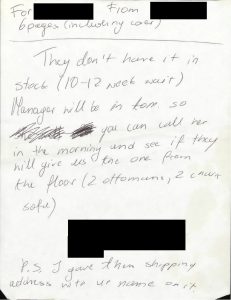 For From
6 pages (including cover)
They don't have it in
stock (10-12 week wait)
Manager will be in tom. so
you can call her
in the morning and see if they
will give us the one from
the floor (2 ottomans, 2 chairs
sofa)
P.S. I gave them shipping
address with ur name on it